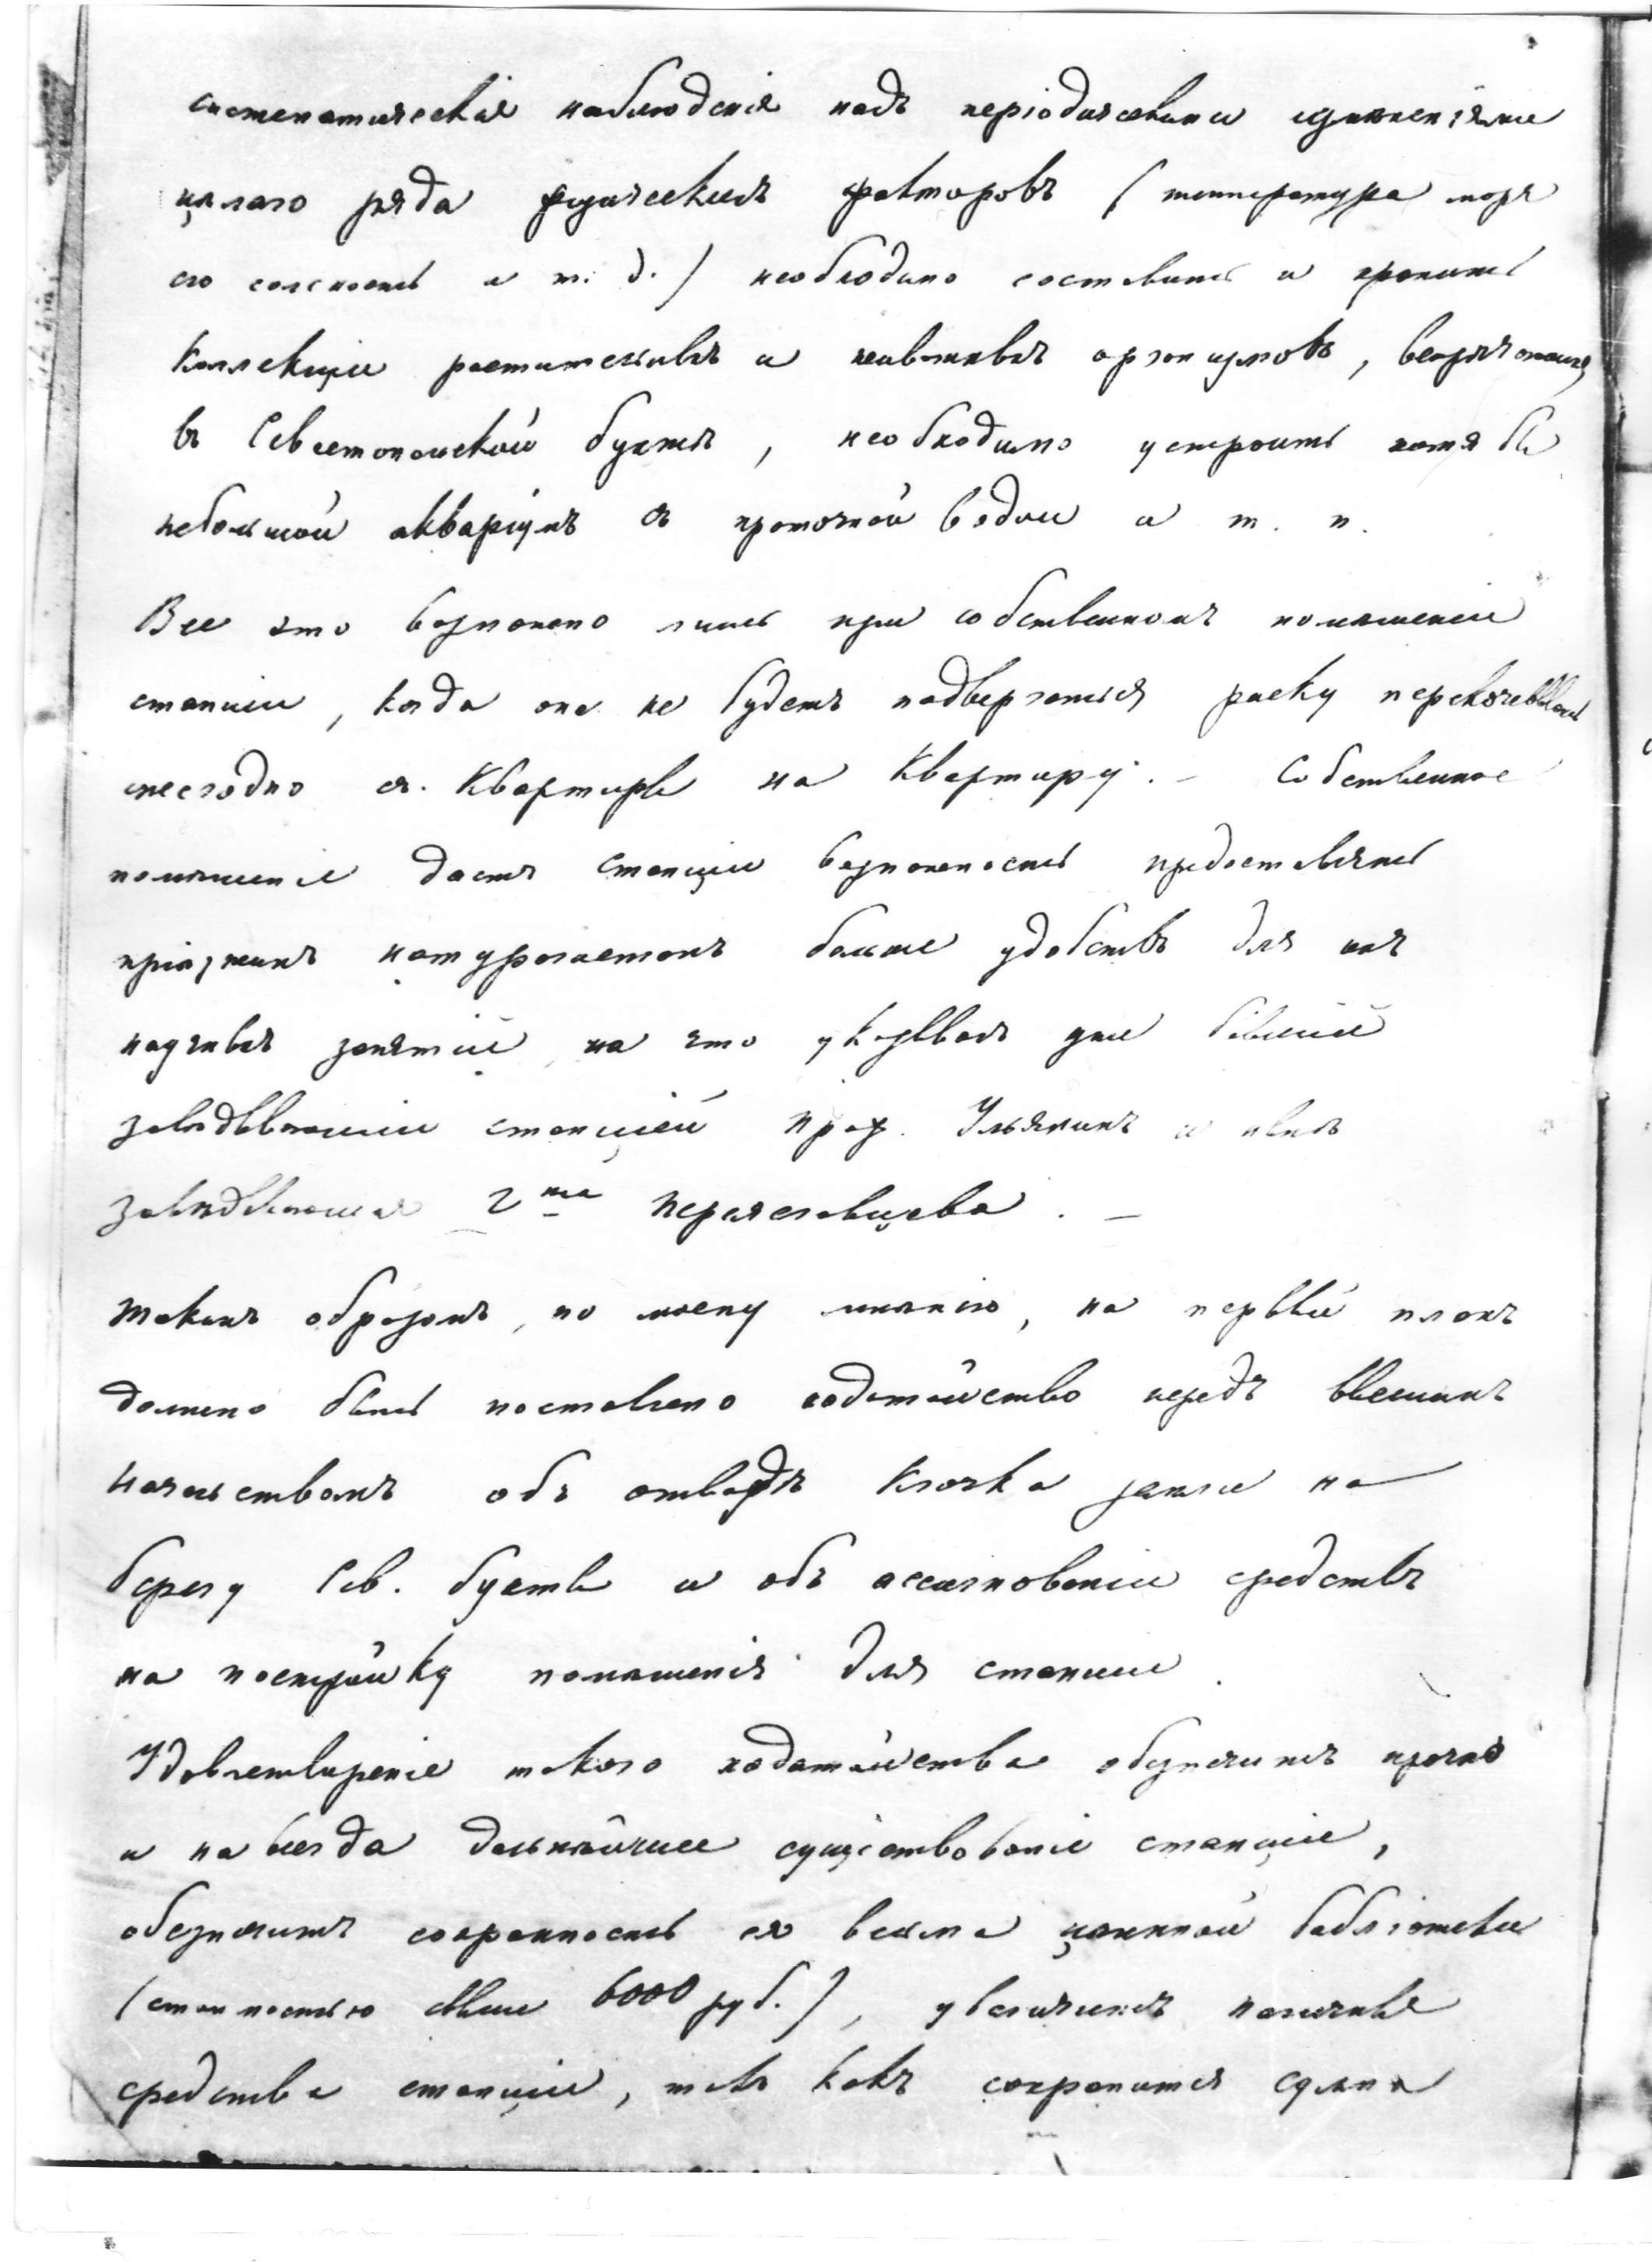 систематическія наблюденія надъ періодическими измѣненіями
цѣлаго ряда физическихъ факторовъ (температура моря
его соленость и т. д.) необходимо составить и хранить
Коллекціи растительныхъ и животныхъ организмовъ, встрѣчающихся
въ Севастопольской бухтѣ, необходимо устроить хотя бы
небольшой акваріумъ съ проточной водой и т. п.
Все это возможно лишь при собственномъ помѣщеніи
станціи, когда она не будетъ подвергаться риску перекочевывать
ежегодно съ квартиры на квартиру. – Собственное
помѣщеніе дастъ станціи возможность предоставлять
пріѣзжимъ натуралистамъ больше удобствъ для ихъ
научныхъ занятій, на что указывалъ уже бывшій
завѣдывающій станціей проф. Ульянинъ и нынѣ
завѣдывающая Г-жа Переяславцева. –
Такимъ образомъ, по моему мнѣнію, на первый планъ
должно быть поставлено ходатайство передъ высшимъ
начальствомъ объ отводѣ клочка земли на
берегу Сев. бухты и объ ассигнованіи средствъ
на постройку помѣщенія для станціи.
Удовлетвореніе такого ходатайства обезпечитъ прочно
и навсегда дальнѣйшее существованіе станціи,
обезпечитъ сохранность ея весьма цѣнной библіотеки
(стоимостью свыше 6000 руб.), увеличитъ наличныя
средства станціи, такъ какъ сохранится сумма